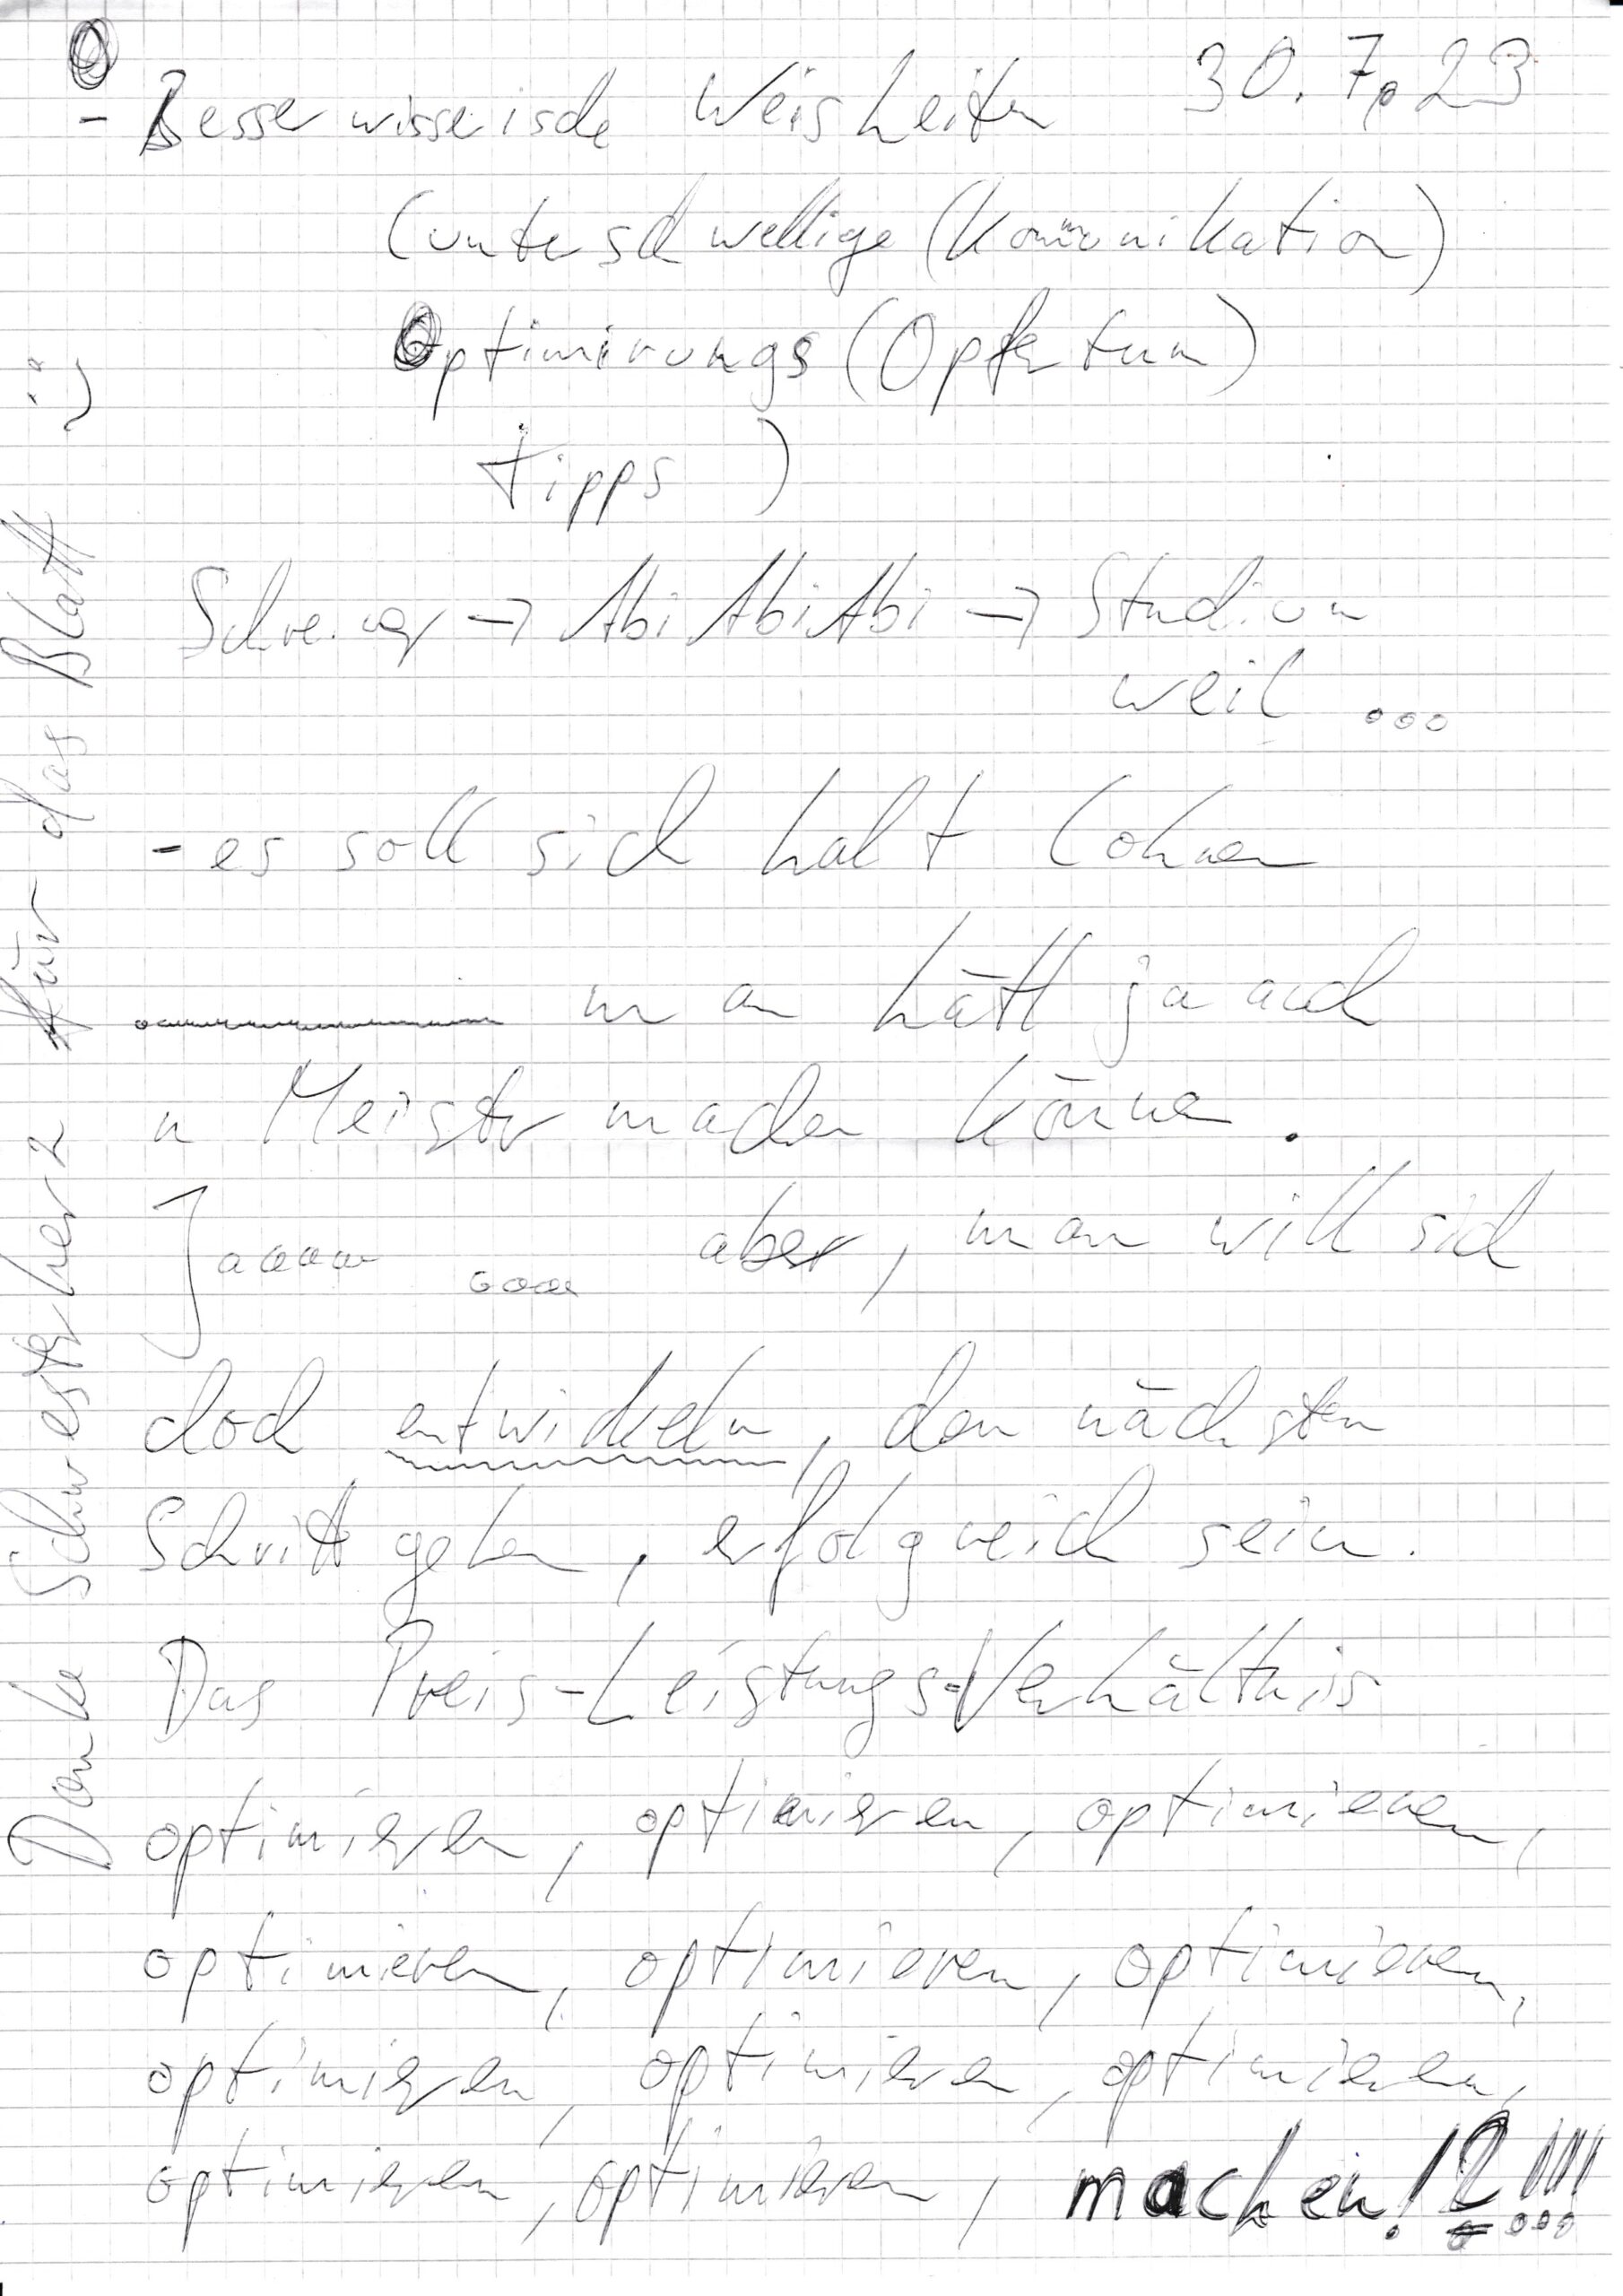 - Besserwisserische Weisheiten 30.7.23
(unterschwellige (Kommunikation)
Optimirungs (Opfertum)
tipps )
Schreiner → Abi Abi Abi → Studium
weil ...
- es soll sich halt lohnen
man hätt ja auch
n Meister machen könne.
Jaaaaa .... aber, man will sich
doch entwickeln, den nächsten
Schritt gehen, erfolgreich sein.
Das Preis-Leistungs-Verhältnis
optimieren, optimieren, optimieren,
optimieren, optimieren, optimieren,
optimieren, optimieren, optimieren,
optimieren, optimieren, machen!?!!!
Danke Schwesterherz für das Blatt :)